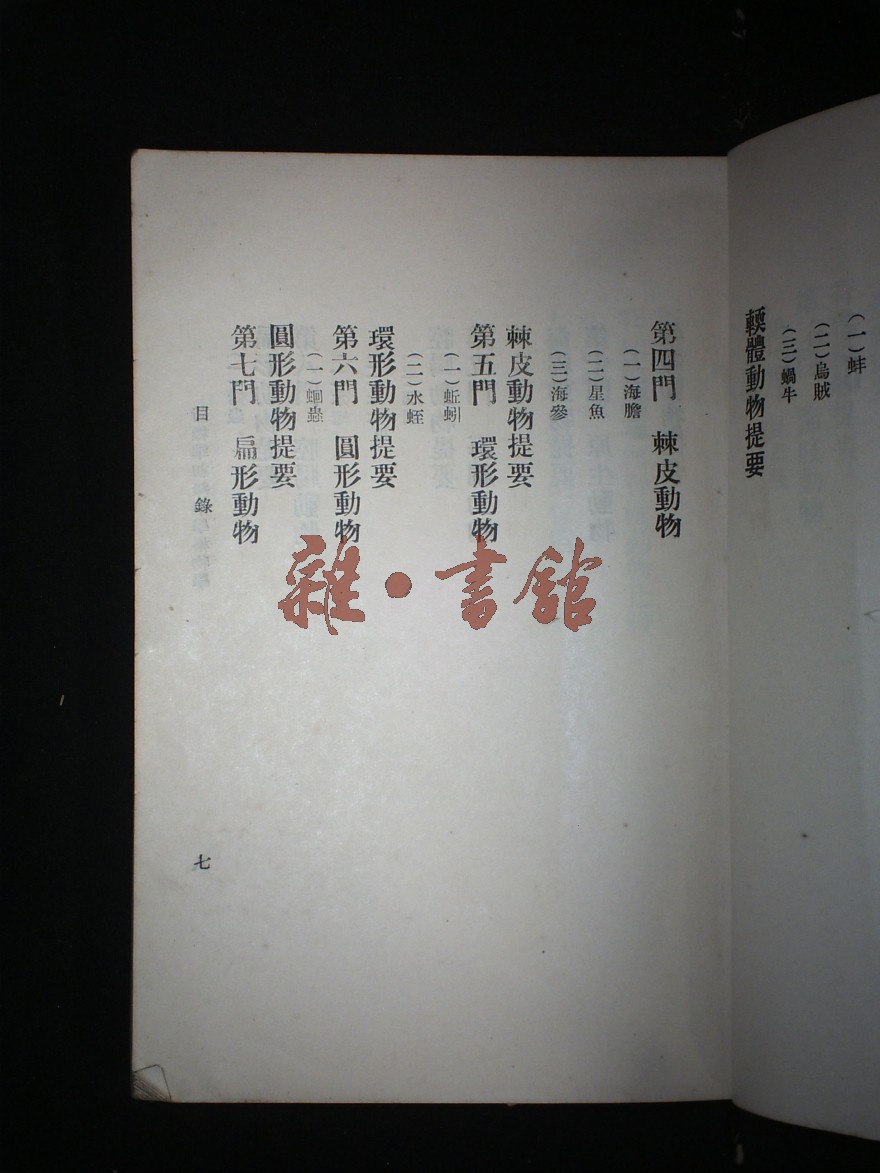 (一)蚌
(二)烏賊
(三)蝸牛
輭體動物提要
第四門 棘皮動物
(一)海膽
(二)星魚
(三)海參
棘皮動物提要
第五門 環形動物
(一)蚯蚓
(二)水蛭
環形動物提要
第六門 圓形動物
(一)蛔蟲
圓形動物提要
第七門 扁形動物
目錄
七
雜·書館